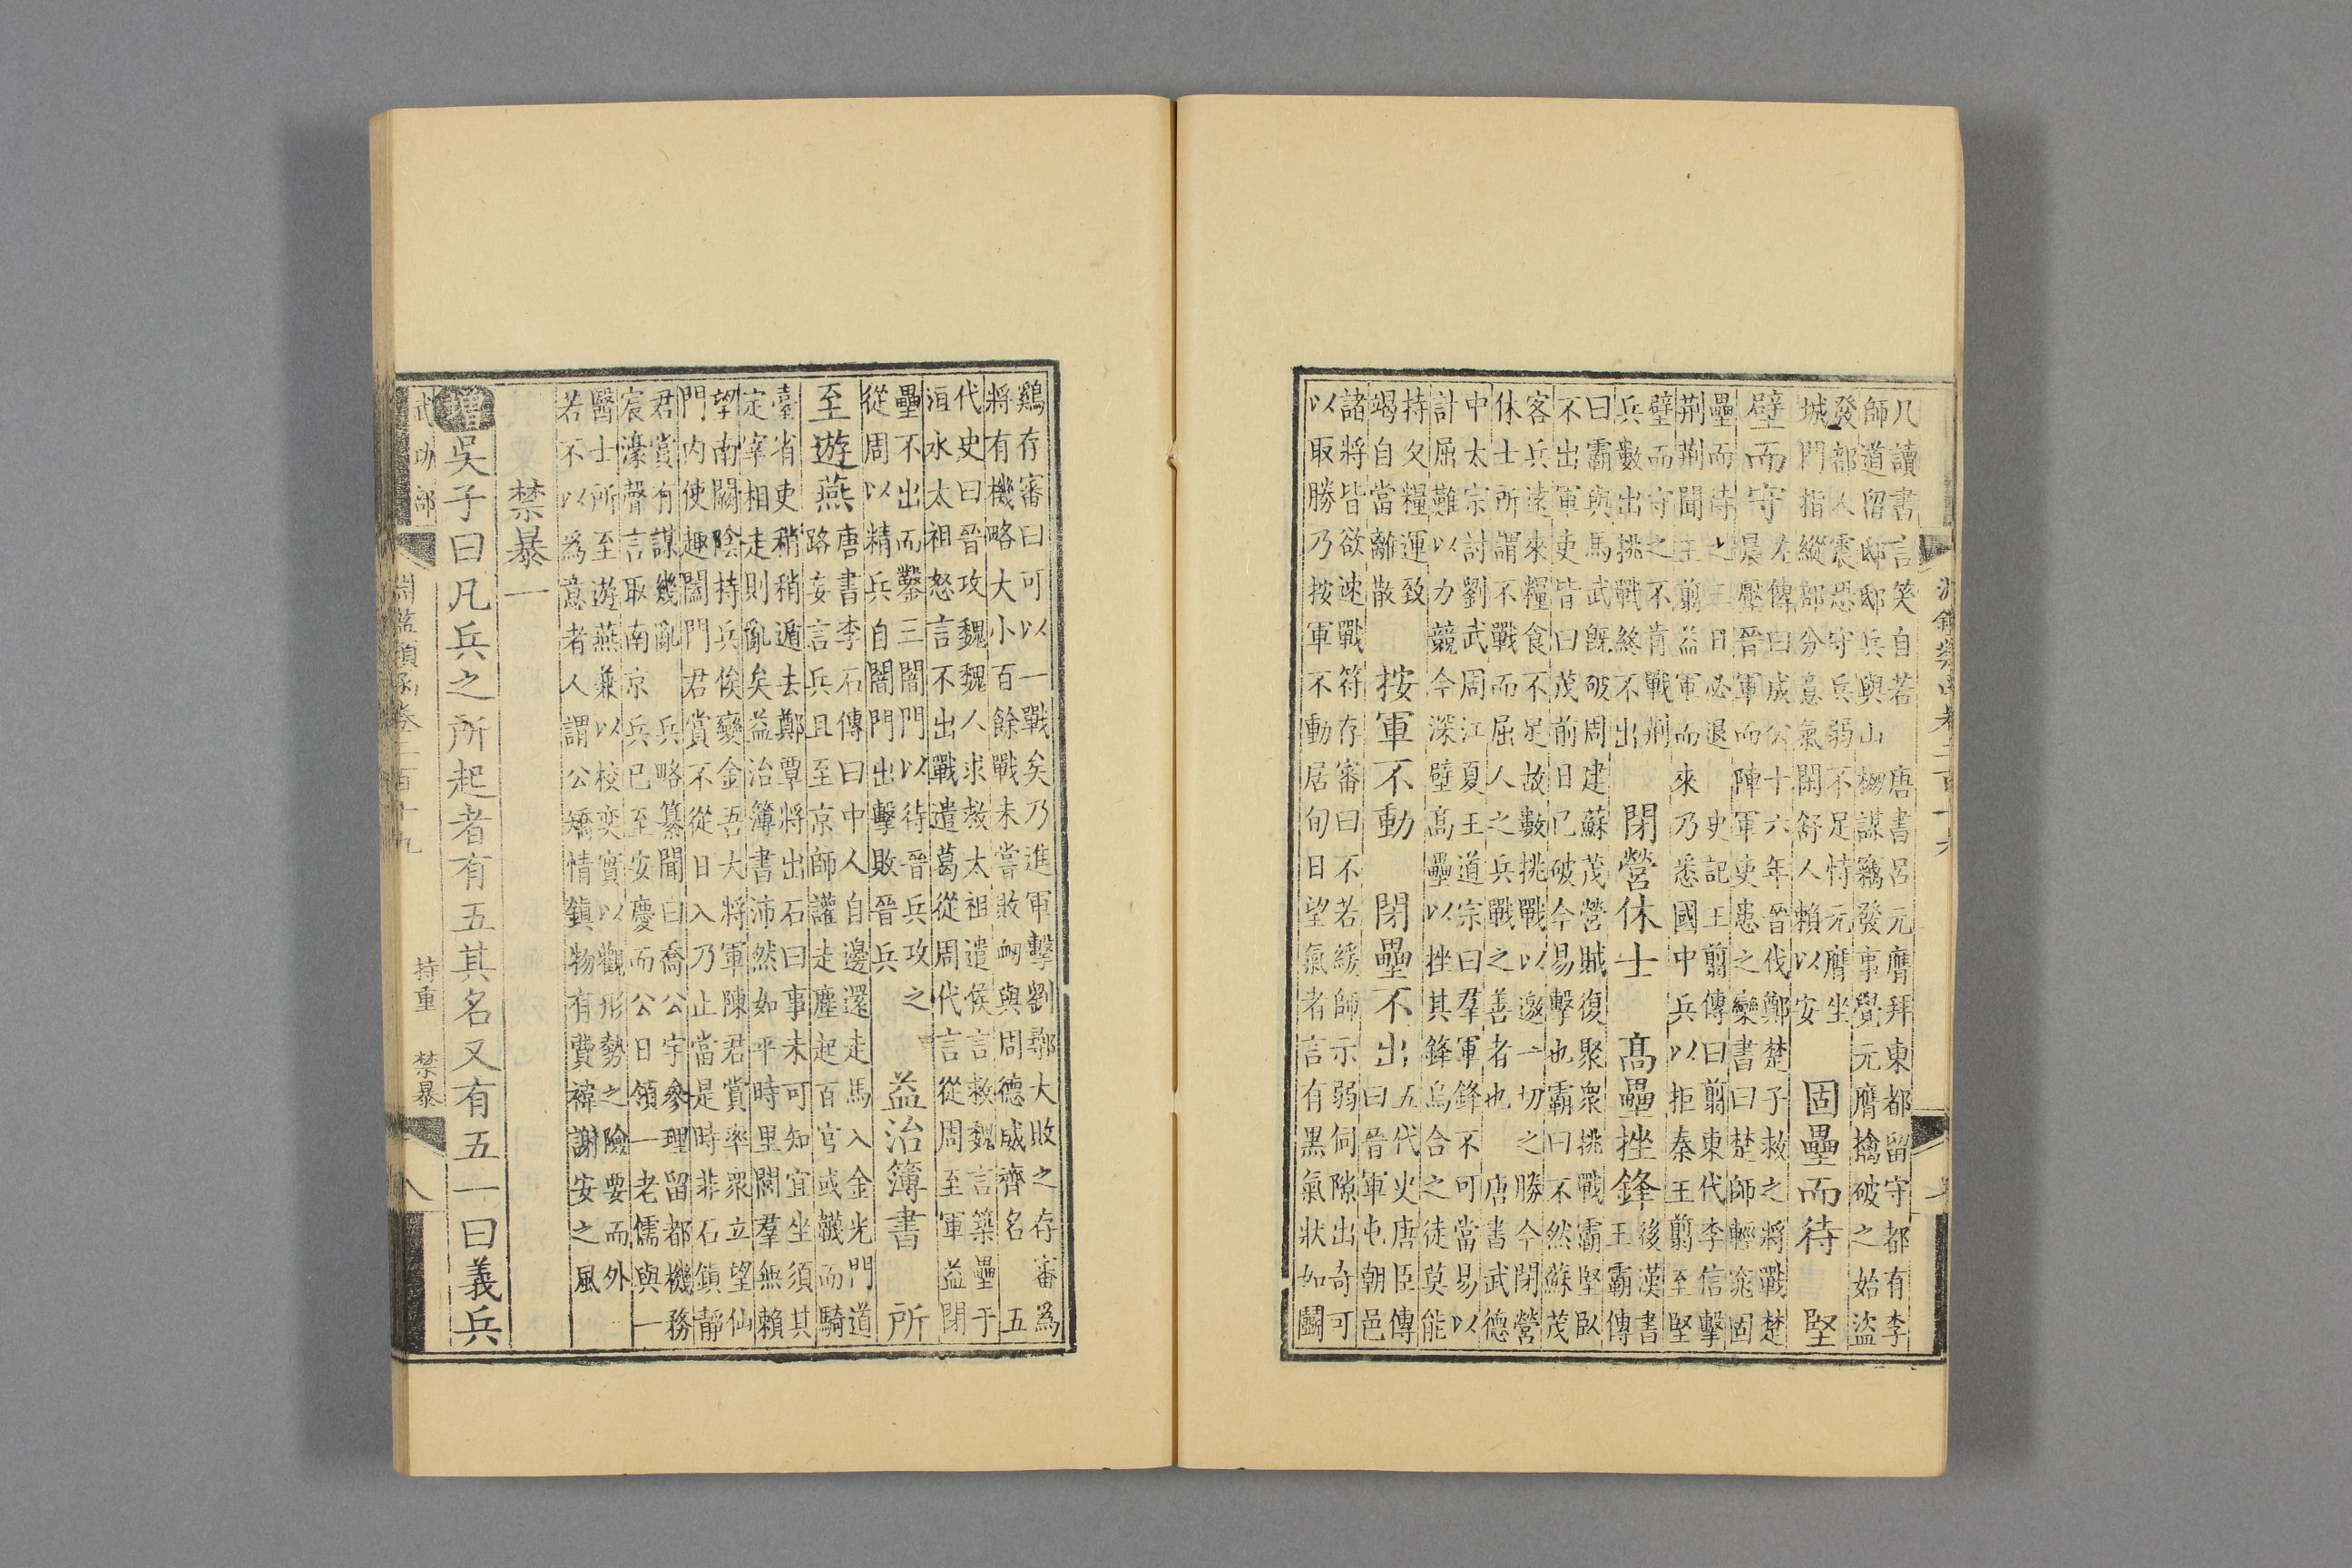 几讀書言笑自若　唐書呂元膺拜東都留守都有李
師道留邸邸兵與山棚謀竊發事覺元膺擒破之始盜
發都人震恐守兵弱不足恃元膺坐
城門指縱部分意氣閑舒人賴以安
固壘而待　堅
壁而守
左傳曰成公十六年晉伐鄭楚子救之將戰楚
晨壓晉軍而陣軍吏患之欒書曰楚師輕窕固
壘而待之三日必退　史記王翦傳曰翦東代李信擊
荆荆聞王翦益軍而來乃悉國中兵以拒秦王翦至堅
壁而守之不肯戰荆
兵數出挑戰煞不出
閉營休士　高壘挫鋒
後漢書
王霸傳
曰霸與馬武旣破周建蘇茂營賊復聚衆挑戰霸堅臥
不出軍吏皆曰茂前日已破今易擊也霸曰不然蘇茂
客兵遠來糧食不足故數挑戰以邀一切之勝今閉營
休士所謂不戰而屈人之兵戰之善者也　唐書武德
中太宗討劉武周江夏王道宗曰羣軍鋒不可當易以
計屈難以力競今深壁高壘以挫其鋒烏合之徒莫能
持久糧運致
竭自當離散
按軍不動　閉壘不出
五代史唐臣傳
曰晉軍屯朝邑
諸將皆欲速戰符存審曰不若緩師示弱伺隙出奇可
以取勝乃按軍不動居旬日望氣者言有黑氣狀如鬬
雞存審曰可以一戰矣乃進軍擊劉鄩大敗之存審為
將有機略大小百餘戰未嘗敗衂與周德威齊名　五
代史曰晉攻魏魏人求救太祖遣侯言救魏言築壘于
洹水太祖怒言不出戰遣葛從周代言從周至軍益閉
壘不出而鑿三闇門以待晉兵攻之
從周以精兵自闇門出擊敗晉兵
益治簿書　所
至遊燕
唐書李石傳曰中人自邊還走馬入金光門道
路妄言兵且至京師讙走塵起百官或韈而騎
臺省吏稍稍遁去鄭覃將出石曰事未可知宜坐須其
定宰相走則亂矣益治簿書沛然如平時里閭羣無賴
望南闕陰持兵俟變金吾大將軍陳君賞率衆立望仙
門内使趣闔門君賞不從日入乃止當是時非石鎮靜
君賞有謀幾亂　兵略纂聞曰喬公宇參理留都機務
宸濠聲言取南京兵已至安慶而公日領一老儒與一
醫士所至遊燕兼以校奕實以觀形勢之險要而外
若不以為意者人謂公矯情鎮物有費褘謝安之風
禁暴一
增吳子曰凡兵之所起者有五其名又有五一曰義兵
武功部　淵鑑類函卷二百十九　持重　禁暴　八